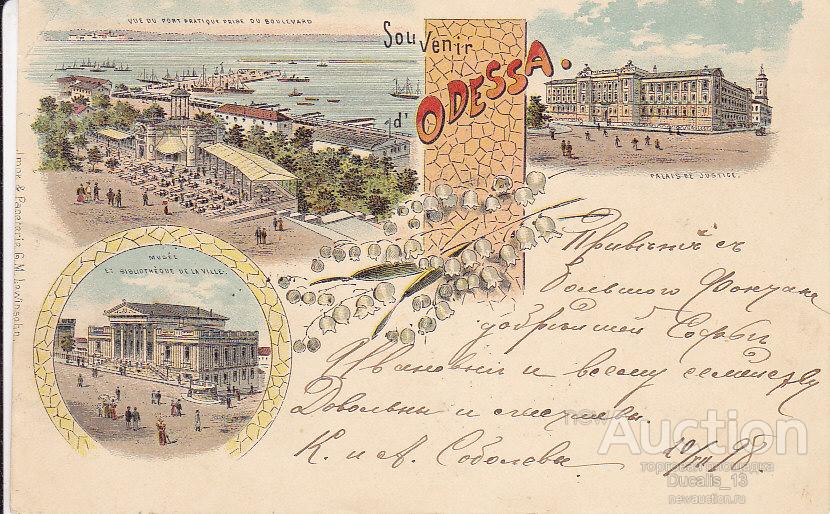 VUE DU PORT PRATIQUE PRISE DU BOULEVARD
Souvenir
d'ODESSA.
PALAIS DE JUSTICE.
MUSÉE
ET BIBLIOTHÈQUE DE LA VILLE.
Impr. & Papeterie G.M. Lewinsohn.
Привѣтъ съ
Большого Фонтана
добрѣйшей Софьи
Ивановны и всему семейству
Довольны и счастливы.
К. и А. Соболевы
10/VII 98.
newAuction
торговая площадка
Ducalis_13
newauction.ru